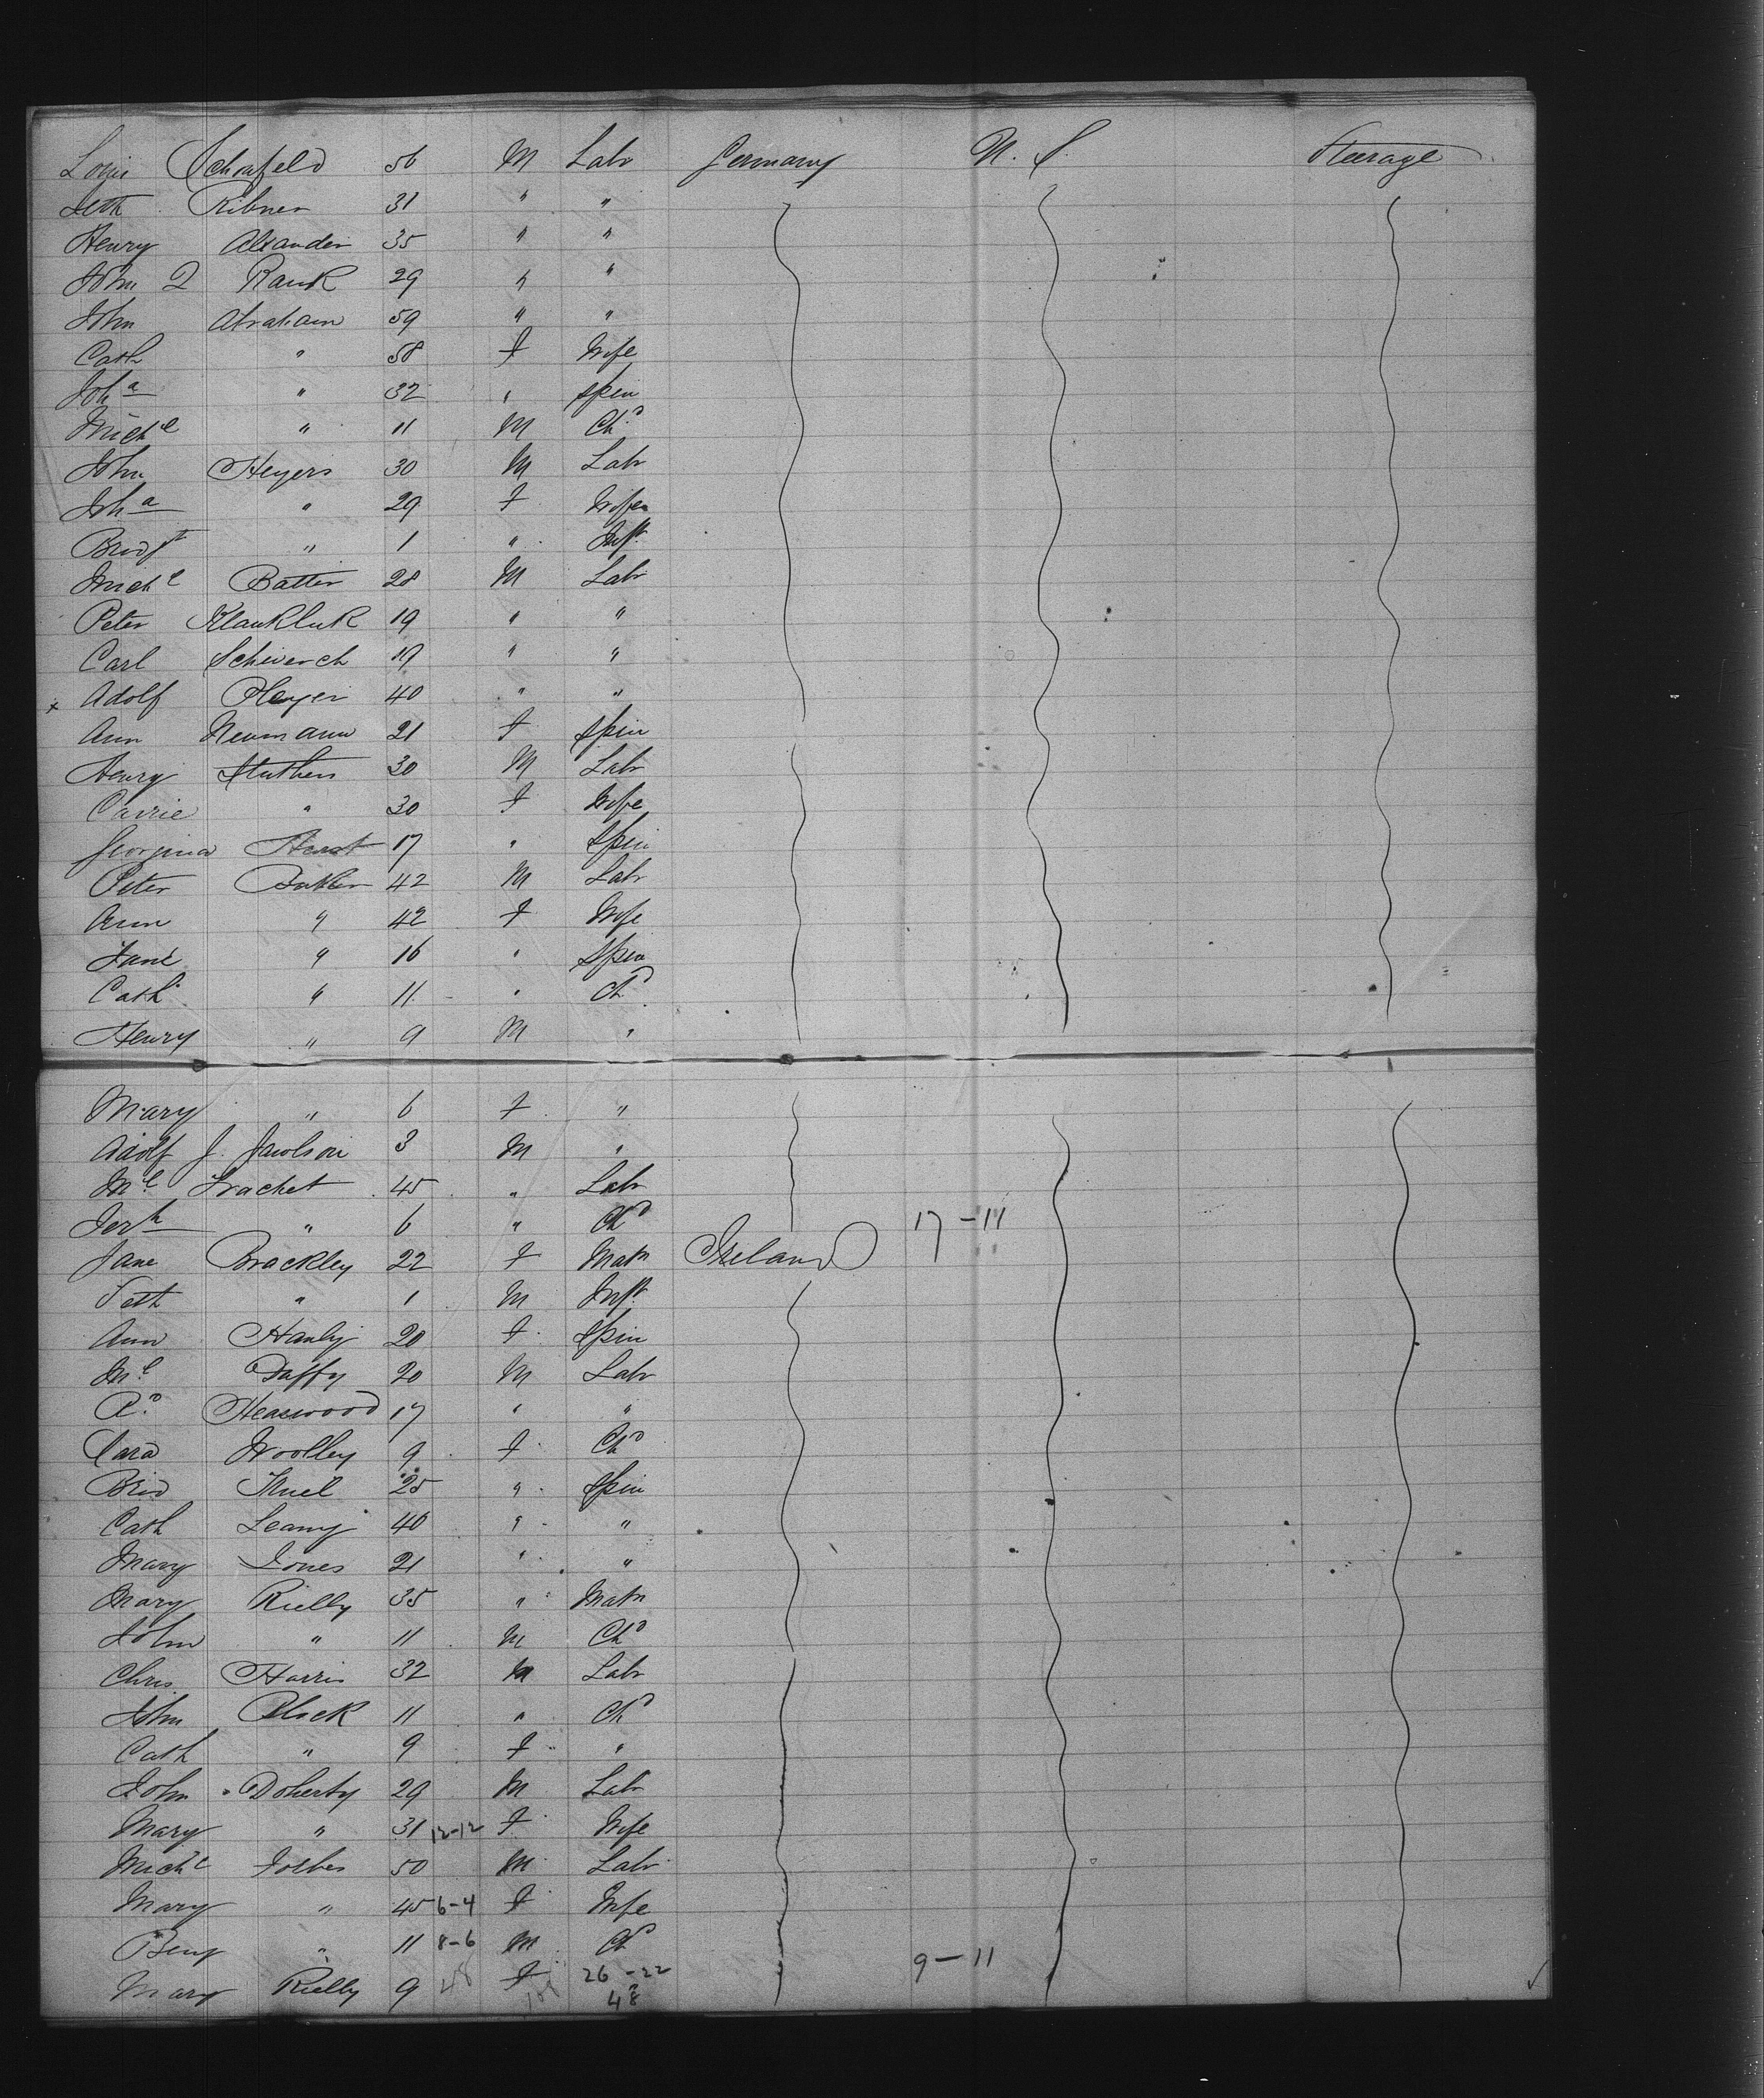 Louis Schonfeld 56 M Labr Germany U.S. Steerage
Seth Ribner 31 " "
Henry Alexander 35 " "
John Q Rank 29 " "
John Abraham 59 " "
Cath " 58 F Wife
Joha " 32 " Spin
Michl " 11 M Chd
John Heyers 30 M Labr
Joha " 29 F Wife
Bridgt " 1 " Inft
Michl Batter 28 M Labr
Peter Klankluk 19 " "
Carl Schierch 19 " "
x Adolf 40 " "
Ann Neumann 21 F Spin
Henry Stuthers 30 M Labr
Carrie " 30 F Wife
Georgina Hurst 17 " Spin
Peter 42 M Labr
Ann " 42 F Wife
Jane " 16 " Spin
Cath " 11 " Chd
Henry " 9 M "
Mary " 6 F "
Adolf J. 3 M "
Ml Frachet 45 " Labr
Jerh " 6 " Chd 17-11
Jane Brackley 22 F Matn Ireland
Seth " 1 M Inft
Ann Hanly 20 F Spin
Ml Duffy 20 M Labr
Rd Hearwood 17 " "
Cara Woolley 9 F Chd
Brid 25 " Spin
Cath Leamy 40 " "
Mary Jones 21 " "
Mary Rielly 35 " Matn
John " 11 M Chd
Chris. Harris 32 M Labr
John Black 11 " Chd
Cath " 9 F "
John Doherty 29 M Labr
Mary " 31 12-12 F Wife
Michl Forbes 50 M Labr
Mary " 45 6-4 F Wife
Benj " 11 8-6 M Chd 9-11
Mary Rielly 9 48 F 26-22
48